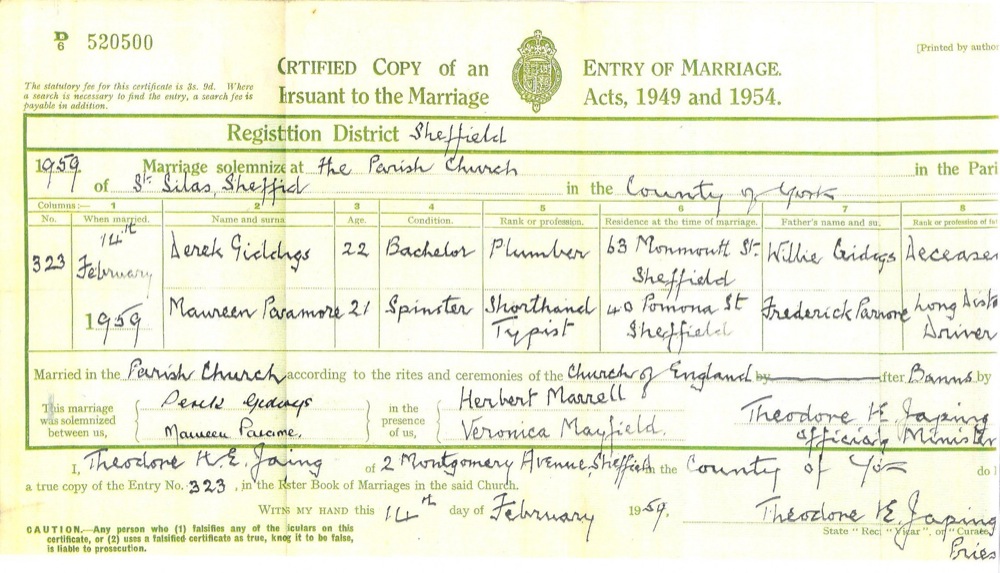 D/6 520500
[Printed by author
CRTIFIED COPY of an ENTRY OF MARRIAGE.
The statutory fee for this certificate is 3s. 9d. Where
a search is necessary to find the entry, a search fee is
payable in addition.
Irsuant to the Marriage Acts, 1949 and 1954.
Registtion District Sheffield
1959. Marriage solemnize at the Parish Church in the Pari
of St. Silas, Sheffid in the County of York
Columns:— 1 2 3 4 5 6 7 8
No. When married. Name and surna Age. Condition. Rank or profession. Residence at the time of marriage. Father's name and su. Rank or profession of fat
323 14th February 1959
Derek Giddngs 22 Bachelor Plumber 63 Monmoutt St. Sheffield Willie Giddgs Decease
Maureen Paramore 21 Spinster Shorthand Typist 40 Pomona St Sheffield Frederick Parmore Long Dista Driver
Married in the Parish Church according to the rites and ceremonies of the Church of England by after Banns by
This marriage was solemnized between us,
Derek Gidings
Maureen Parame.
in the presence of us,
Herbert Marrell
Veronica Mayfield.
Theodore H E Japing
Officiatg Minister
I, Theodore H.E. Jaing of 2 Montgomery Avenue, Sheffield in the County of Yok do
a true copy of the Entry No. 323, in the Rster Book of Marriages in the said Church.
WITNSS MY HAND this 14th day of February 1959.
Theodore H E Japing
State "Rec "Vicar", or "Curate
Pries
CAUTION.—Any person who (1) falsifies any of the iculars on this
certificate, or (2) uses a falsified certificate as true, knog it to be false,
is liable to prosecution.